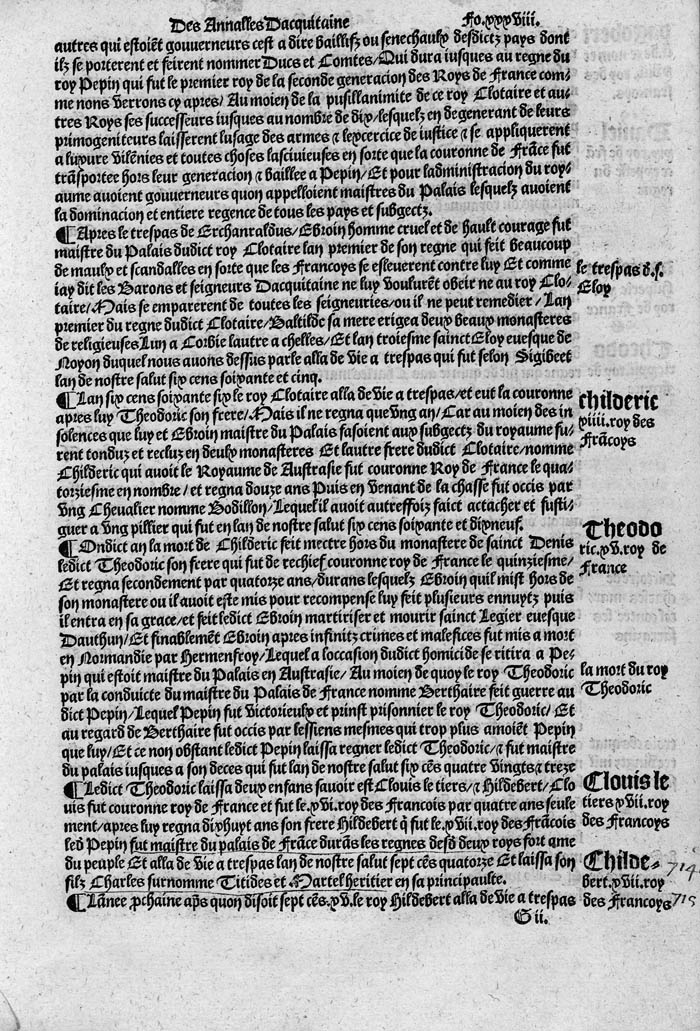 Des Annalles Dacquitaine Fo.xxxviii.
autres qui estoiẽt gouverneurs cest a dire baillifz ou senechaulx desdictz pays dont
ilz se porterent et feirent nommer Ducs et Comtes/Qui dura iusques au regne du
roy Pepin qui fut le premier roy de la seconde generacion des Roys de France com-
me nons verrons cy apres/Au moien de la pusillanimite de ce roy Clotaire et au-
tres Roys ses successeurs iusques au nombre de dix/lesquelz en degenerant de leurs
primogeniteurs laisserent lusage des armes ⁊ lexcercice de iustice ⁊ se appliquerent
a luxure vilẽnies et toutes choses lascivieuses en sorte que la couronne de Frãce fut
trãsportee hors leur generacion ⁊ baillee a Pepin/Et pour ladministracion du roy-
aume avoient gouverneurs quon appelloient maistres du Palais lesquelz avoient
la dominacion et entiere regence de tous les pays et subgectz.
¶Apres le trespas de Erchanraldus/Ebroin homme cruel et de hault courage fut
maistre du Palais dudict roy Clotaire lan premier de son regne qui feit beaucoup
de maulx et scandalles en sorte que les Francoys se esleverent contre luy Et comme
iay dit les Barons et seigneurs Dacquitaine ne luy voulurẽt obeir ne au roy Clo-
taire/Mais se emparerent de toutes les seigneuries/ou il ne peut remedier/Lan
premier du regne dudict Clotaire/Baltilde sa mere erigea deux beaux monasteres
de religieuses Lun a Corbie lautre a chelles/Et lan troiesme sainct Eloy euesque de
Noyon duquel nous avons dessus parle alla de vie a trespas qui fut selon Sigibeet
lan de nostre salut six cens soixante et cinq.
le trespas d.s.
Eloy
¶Lan six cens soixante six le roy Clotaire alla de vie a trespas/et eut la couronne
apres luy Theodoric son frere/Mais il ne regna que vng an/Car au moien des in
solences que luy et Ebroin maistre du Palais fasoient aux subgectz du royaume fu-
rent tonduz et recluz en deulx monasteres Et lautre frere dudict Clotaire/nomme
Childeric qui avoit le Royaume de Austrasie fut couronne Roy de France le qua-
torziesme en nombre/et regna douze ans Puis en venant de la chasse fut occis par
vng Chevalier nomme Bodillon/Lequel il avoit autreffoiz faict actacher et fusti-
guer a vng pillier qui fut en lan de nostre salut six cens soixante et dixneuf.
childeric
xiiii.roy des
Frãcoys
¶Ondict an la mort de Childeric feit mectre hors du monastere de sainct Denis
ledict Theodoric son frere qui fut de rechief couronne roy de France le quinziesme/
Et regna secondement par quatorze ans/durans lesquelz Ebroin quil mist hors de
son monastere ou il avoit este mis pour recompense luy feit plusieurs ennuytz puis
il entra en sa grace/et feit ledict Ebroin martiriser et mourir sainct Legier euesque
Dauthun/Et finablemẽt Ebroin apres infinitz crimes et malefices fut mis a mort
en Normandie par Hermenfroy/Lequel a loccasion dudict homicide se ritira a Pe-
pin qui estoit maistre du Palais en Austrasie/Au moien de quoy le roy Theodoric
par la conduicte du maistre du Palais de France nomme Berthaire feit guerre au
dict Pepin/Lequel Pepin fut victorieulx et prinst prisonnier le roy Theodoric/Et
au regard de Berthaire fut occis par lessiens mesmes qui trop plus amoiẽt Pepin
que luy/Et ce non obstant ledict Pepin laissa regner ledict Theodoric/⁊ fut maistre
du palais iusques a son deces qui fut lan de nostre salut six cẽs quatre vingts ⁊ treze
Theodo
ric.xv.roy de
France
la mort du roy
Theodoric
¶Ledict Theodoric laissa deux enfans savoir est Clouis le tiers/⁊ Hildebert/Clo
uis fut couronne roy de France et fut le.xvi.roy des Francois par quatre ans seule
ment/apres luy regna dixhuyt ans son frere Hildebert q̃ fut le.xvii.roy des Frãcois
led̃ Pepin fut maistre du palais de Frãce durãs les regnes desd̃ deux roys fort ame
du peuple Et alla de vie a trespas lan de nostre salut sept cẽs quatorze Et laissa son
filz Charles surnomme Titides et Martel heritier en sa principaulte.
Clouis le
tiers xvii.roy
des Francoys
Childe-
bert.xvii.roy
des Francoys
714
715
¶Lãnee p̃chaine ap̃s quon disoit sept cẽs.xv.le roy Hildebert alla de vie a trespas
G ii.